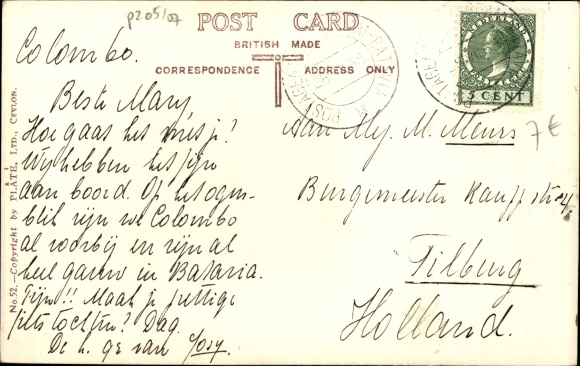 p205/07
POST CARD
BRITISH MADE
CORRESPONDENCE
ADDRESS ONLY
No.52.—Copyright by PLÂTÉ, LTD., CEYLON.
NEDERLAND
5 CENT
7€
Colombo.
Beste Mary
Hoe gaat het met je?
Wij hebben het fijn
aan boord. Op het ogen-
blik zijn we Colombo
al voorbij en zijn al
heel gauw in Batavia.
Fijn!! Maak je prettige
fietstochten? Dag.
De h. gr van Josy.
Aan Mej. M. Meurs
Burgemeester
Tilburg
Holland.